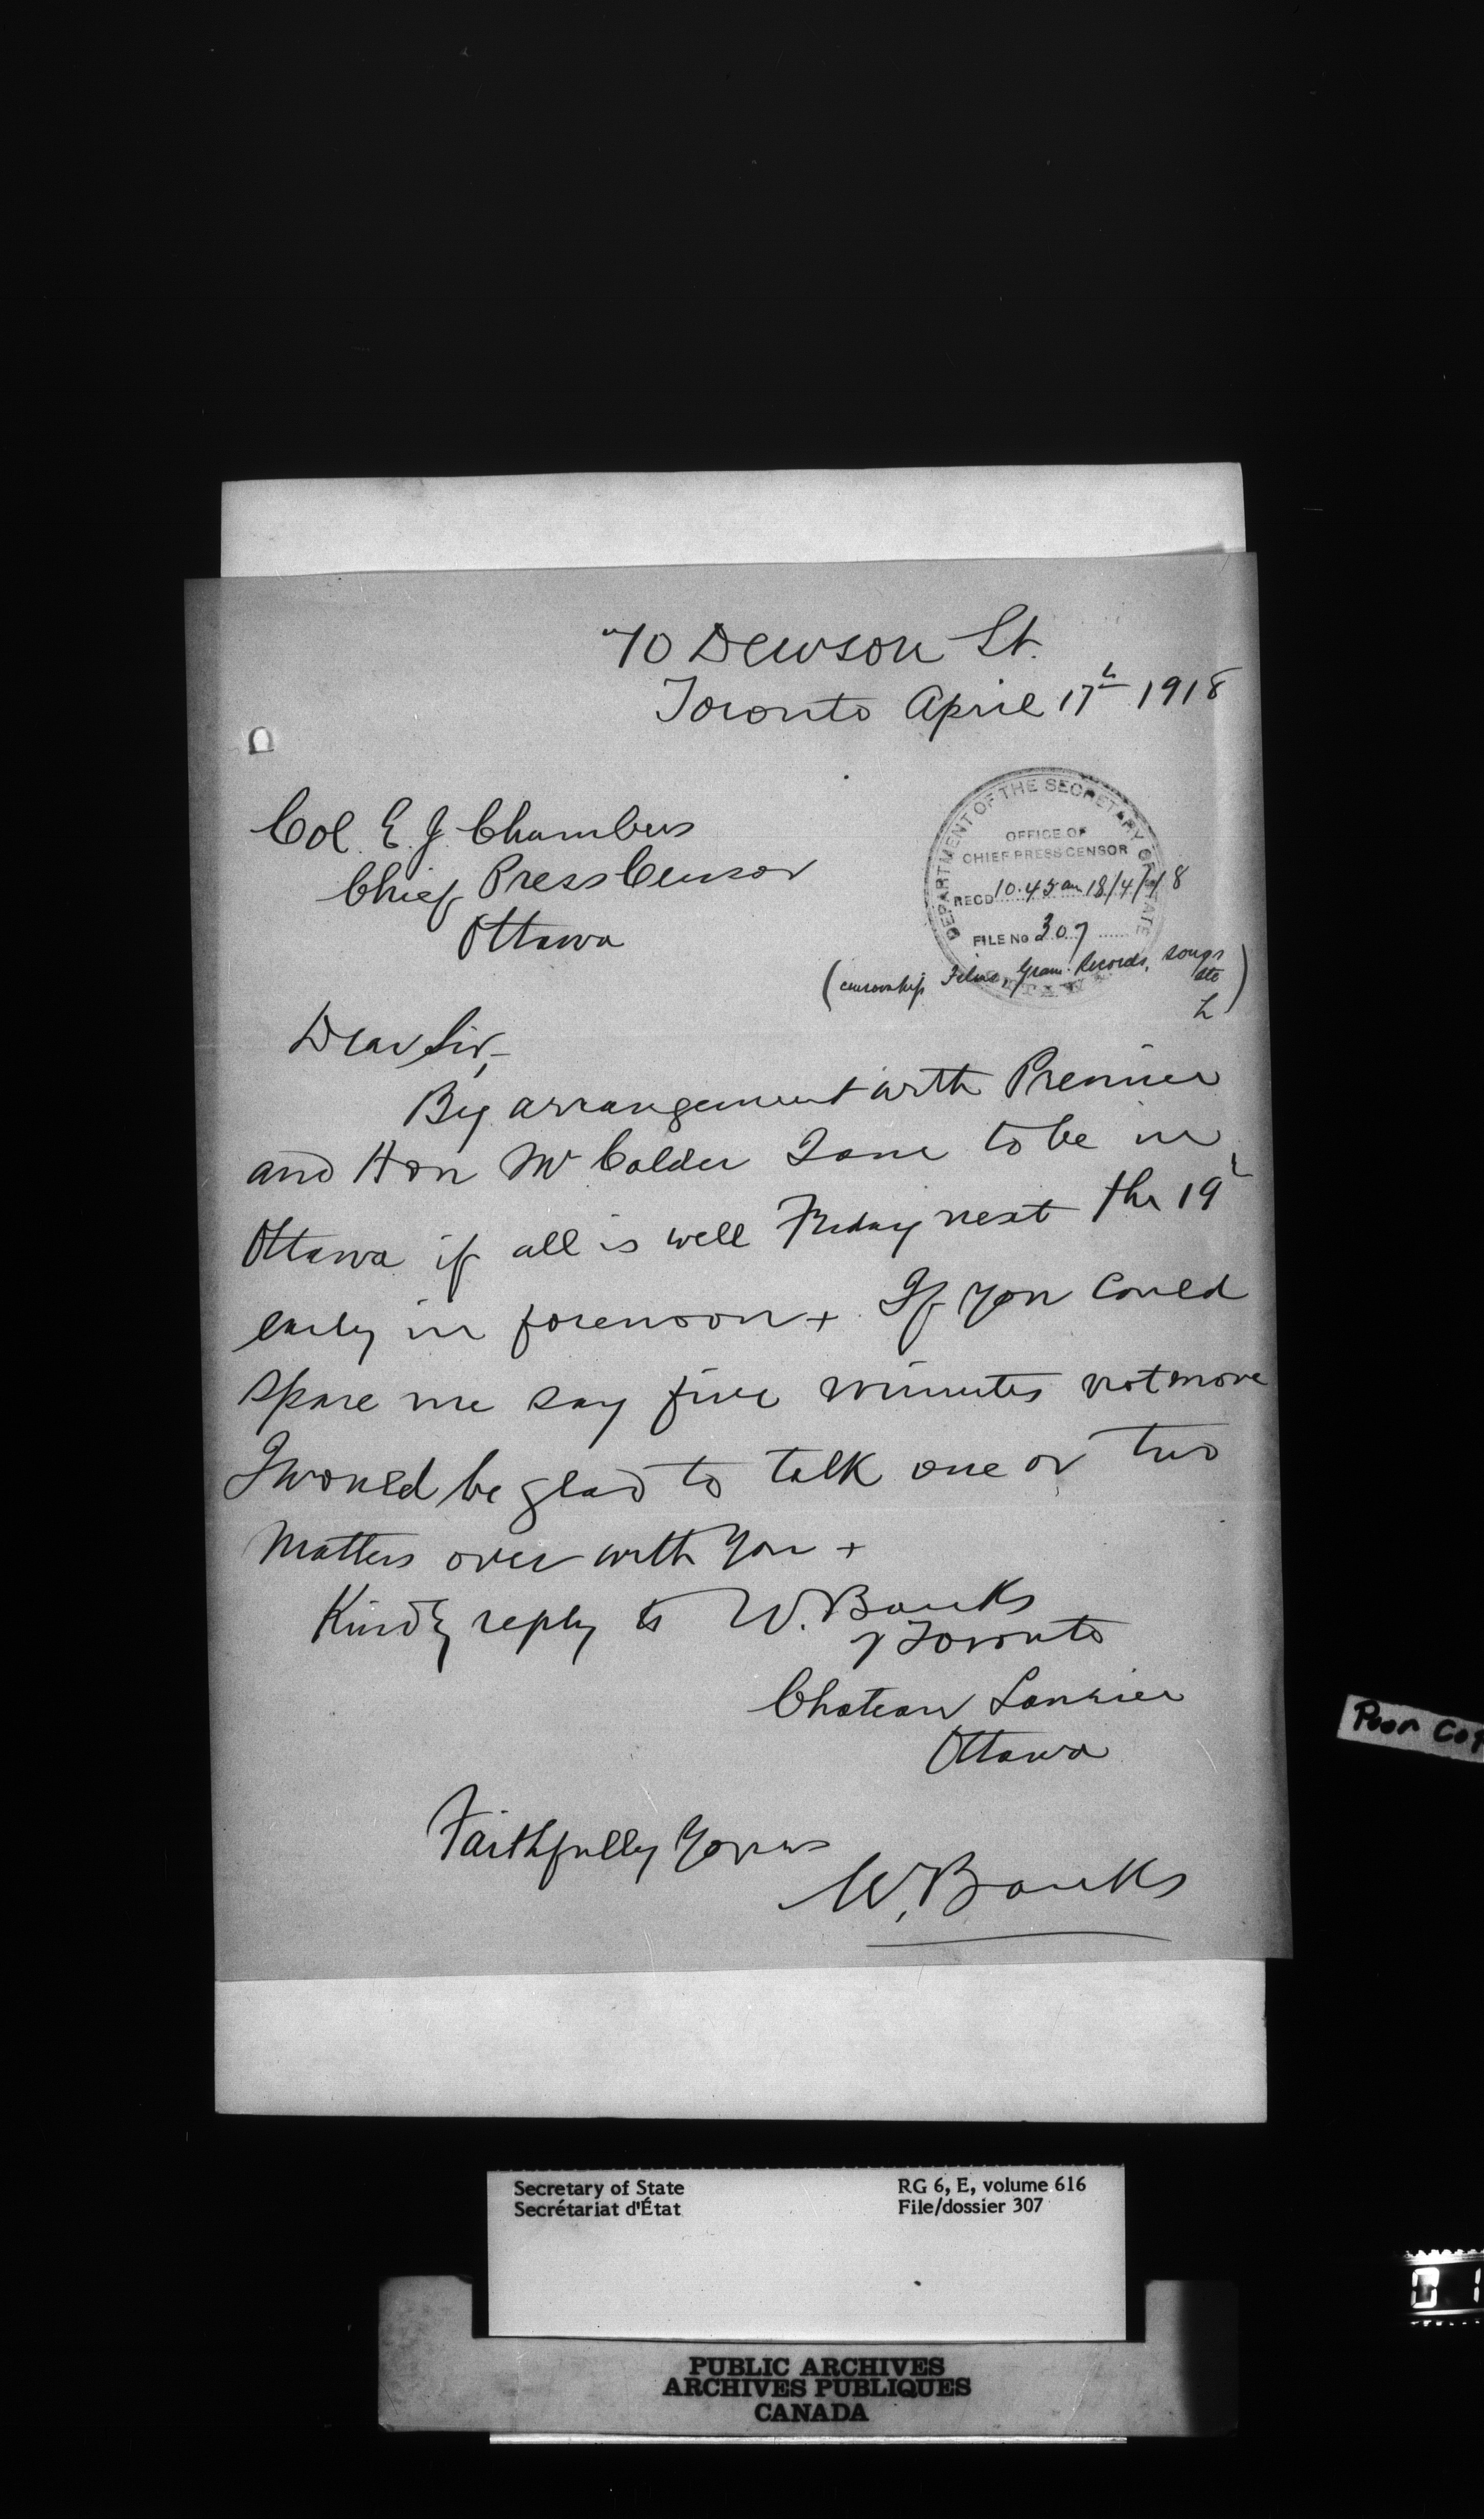 70 Dewson St.
Toronto April 17th 1918
Col. E. J. Chambers
Chief Press Censor
Ottawa
DEPARTMENT OF THE SECRETARY OF STATE
OFFICE OF
CHIEF PRESS CENSOR
RECD 10.45 am 18/4/18
FILE No 307
OTTAWA
(censorship Films, Gram. Records, songs
etc)
Dear Sir,-
By arrangement with Premier
and Hon Mr Calder I am to be in
Ottawa if all is well Friday next the 19th
early in forenoon + If you could
spare me say five minutes not more
I would be glad to talk one or two
matters over with you +
Kindly reply to W. Banks
of Toronto
Chateau Laurier
Ottawa
Faithfully Yours
W. Banks
Poor Cop
Secretary of State
Secrétariat d'État
RG 6, E, volume 616
File/dossier 307
0 1
PUBLIC ARCHIVES
ARCHIVES PUBLIQUES
CANADA